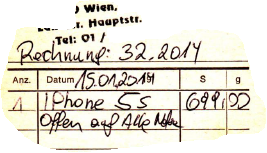 Wien,
r. Hauptstr.
Tel: 01 /
Rechnung: 32.2014
Anz. Datum 15.01.2014 S g
1 iPhone 5s 699,00
Offen auf Alle